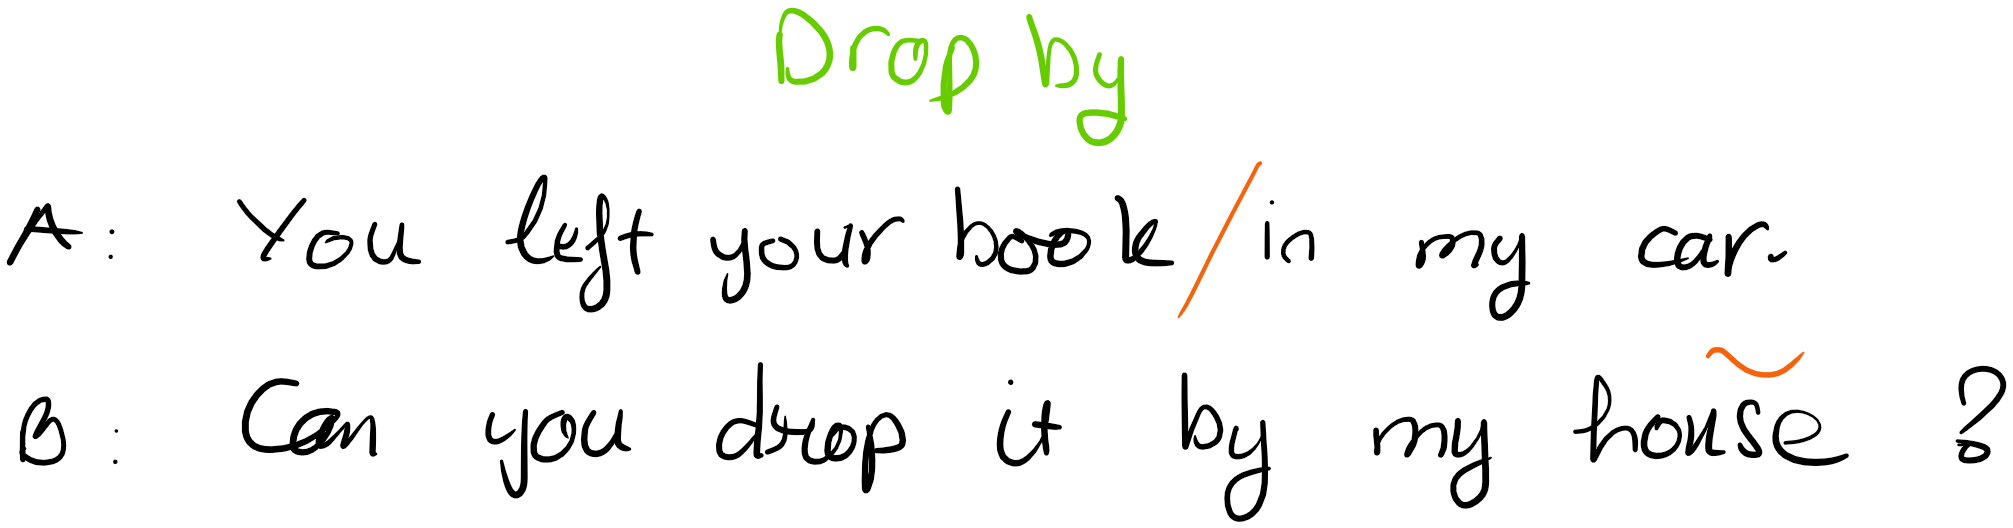 Drop by
A: You left your book/in my car.
B: Can you drop it by my house?